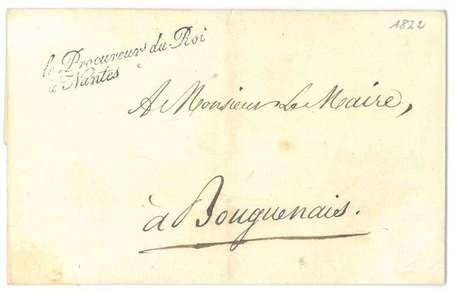 1822
le Procureur du Roi
à Nantes
A Monsieur Le Maire,
à Bouguenais.